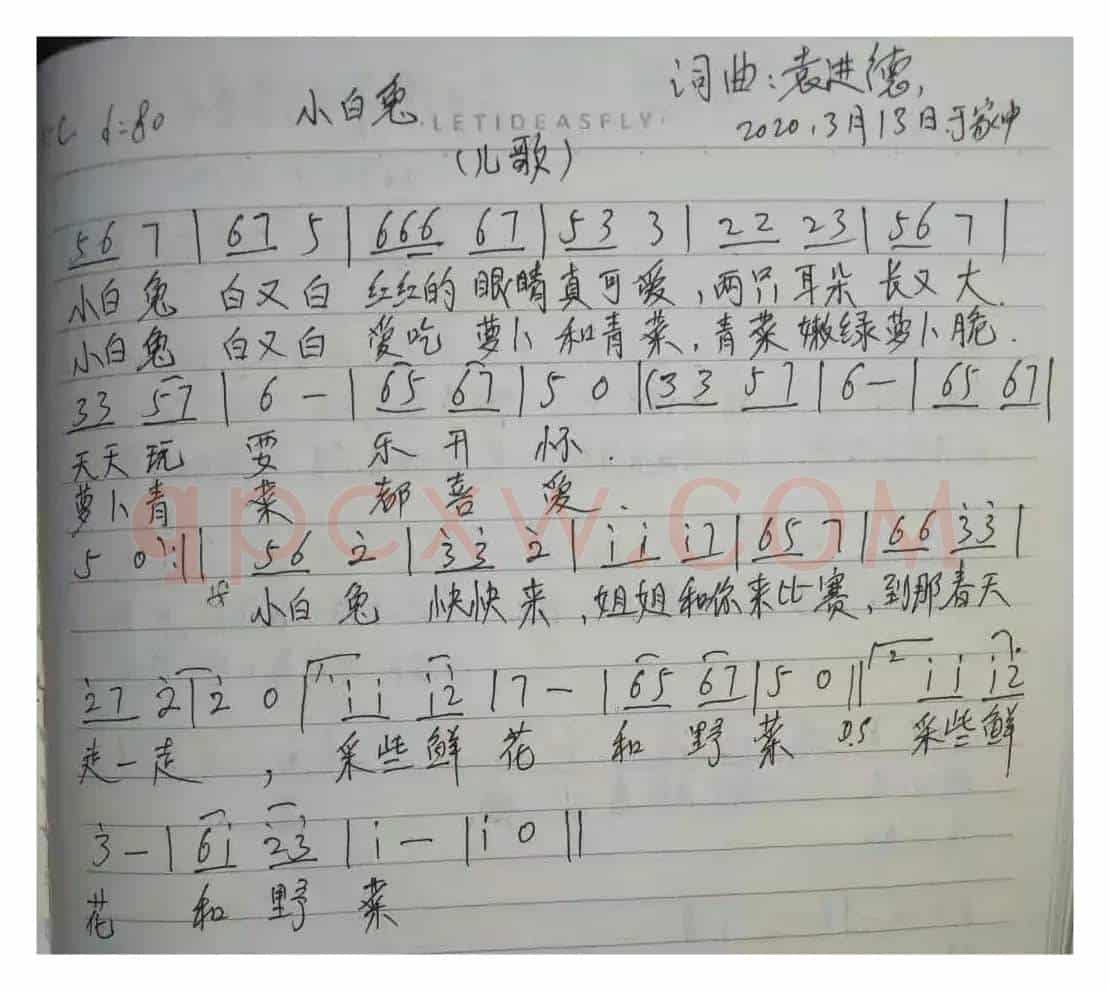 小白兔 词曲:袁进德,
C ♩=80 LETIDEASFLY 2020.3月13日于家中
(儿歌)
56 7 | 67 5 | 666 67 | 53 3 | 22 23 | 56 7 |
小白兔 白又白 红红的 眼睛真可爱,两只耳朵 长又大.
小白兔 白又白 爱吃 萝卜 和青菜,青菜 嫩绿萝卜脆.
33 57 | 6 - | 65 67 | 5 0 |(33 57 | 6 - | 65 67 |
天天玩 耍 乐 开 怀.
萝卜青 菜 都 喜 爱.
qpcxw.com
5 0):|| 56 2̇ | 3̇3̇ 2̇ | i i i7 | 65 7 | 66 3̇3̇ |
小白 兔 快快来,姐姐和你来比赛,到那春天
2̇7 2̇ | 2̇ 0 | 1. i i i2̇ | 7 - | 65 67 | 5 0 || 2. i i i2̇
走一走 , 采些鲜 花 和 野 菜 D.S 采些鲜
3̇ - | 6i 2̇3̇ | i - | i 0 ||
花 和 野 菜